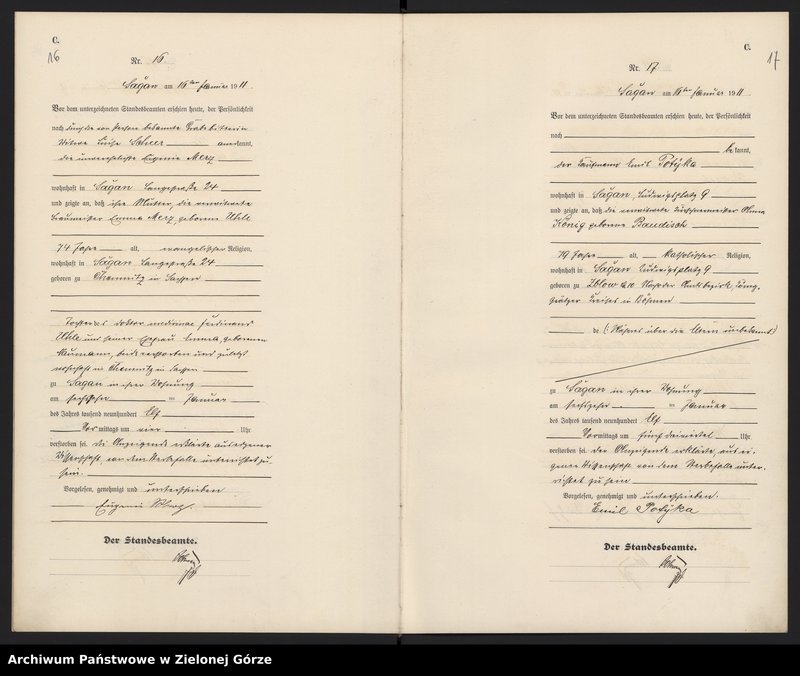 C.
16
Nr. 16
Sagan am 16ten Januar 1911.
Vor dem unterzeichneten Standesbeamten erschien heute, der Persönlichkeit
nach durch die von Person bekannte
Witwe Luise Scheer anerkannt,
die unverehelichte Eugenie Merz
wohnhaft in Sagan Langestraße 24
und zeigte an, daß ihre Mutter, die verwitwete
Braumeister Emma Merz, geborene Uhle
74 Jahre alt, evangelischer Religion,
wohnhaft in Sagan Langestraße 24
geboren zu Chemnitz in Sachsen
Tochter des doktor medicinae Ferdinand
Uhle und seiner Ehefrau geborenen
Naumann, beide verstorben und zuletzt
wohnhaft in Chemnitz in Sachsen
zu Sagan in ihrer Wohnung
am sechszehnten Januar
des Jahres tausend neunhundert elf
Vormittags um vier Uhr
verstorben sei. Die Anzeigende erklärte aus eigener
Wissenschaft von dem Sterbefalle unterrichtet zu
sein.
Vorgelesen, genehmigt und unterschrieben
Eugenie Merz.
Der Standesbeamte.
C.
17
Nr. 17
Sagan am 16ten Januar 1911.
Vor dem unterzeichneten Standesbeamten erschien heute, der Persönlichkeit
nach
bekannt,
der Kaufmann Emil Potyka
wohnhaft in Sagan, Ludwigsplatz 9
und zeigte an, daß die verwitwete
König geborene Baudisch
79 Jahre alt, katholischer Religion,
wohnhaft in Sagan Ludwigsplatz 9
geboren zu
in Böhmen
de (Näheres über die Eltern unbekannt)
zu Sagan in ihrer Wohnung
am sechszehnten Januar
des Jahres tausend neunhundert elf
Vormittags um fünf dreiviertel Uhr
verstorben sei. Der Anzeigende erklärte, aus ei-
gener Wissenschaft von dem Sterbefalle unter-
richtet zu sein
Vorgelesen, genehmigt und unterschrieben.
Emil Potyka
Der Standesbeamte.
Archiwum Państwowe w Zielonej Górze